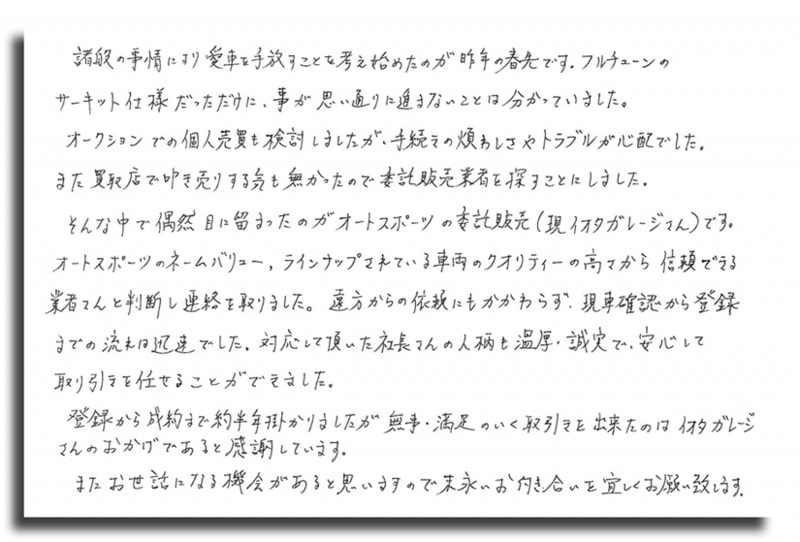 諸般の事情により愛車を手放すことを考え始めたのが昨年の春先です。フルチューンの
サーキット仕様だっただけに、事が思い通りに進まないことは分かっていました。
オークションでの個人売買も検討しましたが、手続きの煩わしさやトラブルが心配でした。
また買取店で叩き売りする気も無かったので委託販売業者を探すことにしました。
そんな中で偶然目に留まったのがオートスポーツの委託販売(現イオタガレージさん)です。
オートスポーツのネームバリュー、ラインナップされている車両のクオリティーの高さから信頼できる
業者さんと判断し連絡を取りました。遠方からの依頼にもかかわらず、現車確認から登録
までの流れは迅速でした。対応して頂いた社長さんの人柄も温厚・誠実で、安心して
取り引きを任せることができました。
登録から成約まで約半年掛かりましたが無事・満足のいく取引きを出来たのはイオタガレージ
さんのおかげであると感謝しています。
またお世話になる機会があると思いますので末永いお付き合いを宜しくお願い致します。